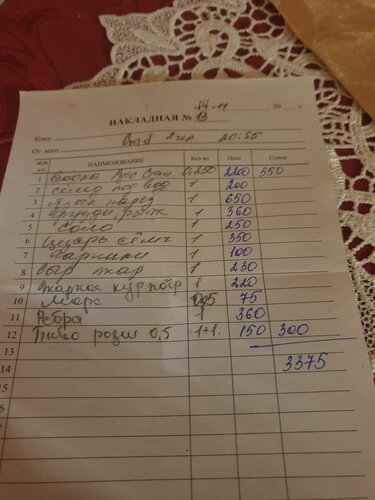 14 - 11 20 г.
НАКЛАДНАЯ № 13
Кому Ст 8 2 чер 20:55
От кого
№№ п/п НАИМЕНОВАНИЕ Кол-во Цена Сумма
1 Водка 0,250 220 550
2 сельд под вод 1 200
3 1 650
4 Грузди, рыж 1 360
5 Сало 1 250
6 Цезарь сёмг 1 350
7 1 100
8 Сыр жар 1 230
9 Жаркое кур 1 220
10 Морс 0,5 75
11 Ребра 1 360
12 Пиво розл 0,5 1+1. 150 300
13
14 3375
15